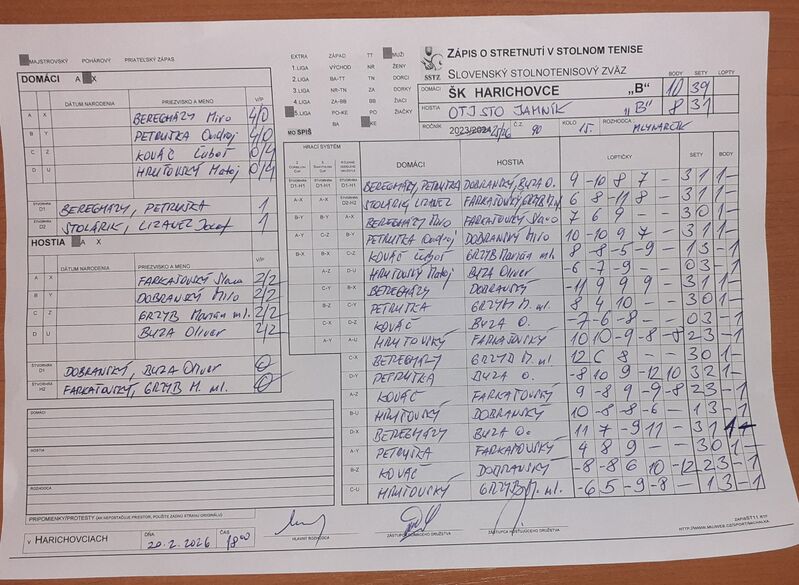 MAJSTROVSKÝ POHÁROVÝ PRIATEĽSKÝ ZÁPAS
DOMÁCI A X
DÁTUM NARODENIA PRIEZVISKO A MENO V/P
A X BEREGHÁZY Miro 4/0
B Y PETRUŠKA Ondrej 4/0
C Z KOVÁČ Ľuboš 0/4
D U HRUŤOVSKÝ Matej 0/4
ŠTVORHRA D1 BEREGHÁZY, PETRUŠKA 1
ŠTVORHRA D2 STOLÁRIK, LIZÁVEL Jozef 1
HOSTIA A X
DÁTUM NARODENIA PRIEZVISKO A MENO V/P
A X FARKAŠOVSKÝ Slavo 2/2
B Y DOBRANSKÝ Miro 2/2
C Z GRZYB Marián ml. 2/2
D U BUZA Oliver 2/2
ŠTVORHRA D1 DOBRANSKÝ, BUZA Oliver 0
ŠTVORHRA H2 FARKAŠOVSKÝ, GRZYB M. ml. 0
DOMÁCI
HOSTIA
ROZHODCA
PRIPOMIENKY/PROTESTY (AK NEPOSTAČUJE PRIESTOR, POUŽITE ZADNÚ STRANU ORIGINÁLU)
V HARICHOVCIACH DŇA 20.2.2026 ČAS 18 00
EXTRA ZÁPAD TT MUŽI
1. LIGA VÝCHOD NR ŽENY
2. LIGA BA-TT TN DORCI
3. LIGA NR-TN ZA DORKY
4. LIGA ZA-BB BB ŽIACI
5. LIGA PO-KE PO ŽIAČKY
BA KE
MO SPIŠ
SSTZ
ZÁPIS O STRETNUTÍ V STOLNOM TENISE
SLOVENSKÝ STOLNOTENISOVÝ ZVÄZ BODY SETY LOPTY
DOMÁCI ŠK HARICHOVCE „B" 10 39
HOSTIA OTJ STO JAMNÍK „B" 8 31
ROČNÍK 2023/2024 25/26 Č.Z. 90 KOLO 15. ROZHODCA MLYNARČÍK
HRACÍ SYSTÉM
DOMÁCI HOSTIA LOPTIČKY SETY BODY
D1-H1 BEREGHÁZY, PETRUŠKA DOBRANSKÝ, BUZA O. 9 -10 8 7 - 3 1 1 -
A-X D2-H2 STOLÁRIK, LIZÁVEL FARKAŠOVSKÝ, GRZYB M. ml 6 8 -11 8 - 3 1 1 -
B-Y A-X BEREGHÁZY Miro FARKAŠOVSKÝ Slavo 7 6 9 - - 3 0 1 -
A-Y C-Z B-Y PETRUŠKA Ondrej DOBRANSKÝ Miro 10 -10 9 7 - 3 1 1 -
B-X B-X C-Z KOVÁČ Ľuboš GRZYB Marián ml. 8 -8 -5 -9 - 1 3 - 1
A-Z D-U HRUŤOVSKÝ Matej BUZA Oliver -6 -7 -9 - - 0 3 - 1
C-Y B-X BEREGHÁZY DOBRANSKÝ -11 9 9 9 - 3 1 1 -
B-Z C-Y PETRUŠKA GRZYB M. ml. 8 4 10 - - 3 0 1 -
C-X D-Z KOVÁČ BUZA O. -7 -6 -8 - - 0 3 - 1
A-Y A-U HRUŤOVSKÝ FARKAŠOVSKÝ 10 10 -9 -8 -8 2 3 - 1
C-X BEREGHÁZY GRZYB M. ml. 12 6 8 - - 3 0 1 -
D-Y PETRUŠKA BUZA O. -8 10 9 -12 10 3 2 1 -
A-Z KOVÁČ FARKAŠOVSKÝ 9 -8 9 -9 -8 2 3 - 1
B-U HRUŤOVSKÝ DOBRANSKÝ 10 -8 -8 -6 - 1 3 - 1
D-X BEREGHÁZY BUZA O. 11 7 -9 11 - 3 1 1 -
A-Y PETRUŠKA FARKAŠOVSKÝ 4 8 9 - - 3 0 1 -
B-Z KOVÁČ DOBRANSKÝ -8 -8 6 10 -12 2 3 - 1
C-U HRUŤOVSKÝ GRZYB M. ml. -6 5 -9 -8 - 1 3 - 1
HLAVNÝ ROZHODCA
ZÁSTUPCA DOMÁCEHO DRUŽSTVA
ZÁSTUPCA HOSŤUJÚCEHO DRUŽSTVA